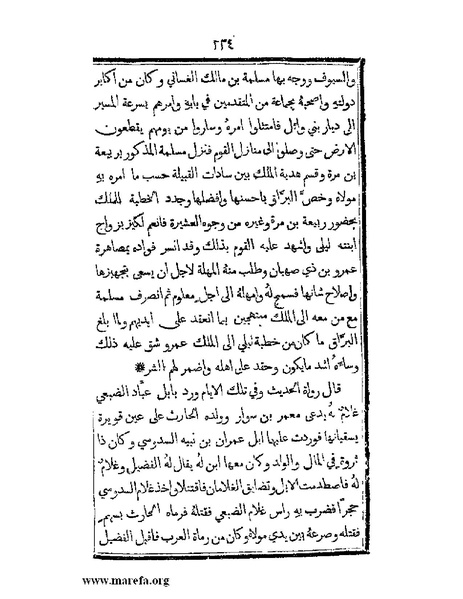 ٢٣٤
والسيوف ووجه بها مسلمة بن مالك الغساني وكان من اكابر
دولته واصحبهُ بجماعة من المتقدمين في بابهِ وامرهم بسرعة المسير
الى ديار بني وايل فامتثلوا امرهُ وساروا من يومهم يقطعون
الارض حتى وصلوا الى منازل القوم فنزل مسلمة المذكور بربيعة
بن مرة وقسم هدية الملك بين سادات القبيلة حسب ما امره به
مولاهُ وخصَّ البرَّاق باحسنها وافضلها وجدد الخطبة للملك
بحضور ربيعة بن مرة وغيره من وجوه العشيرة فانعم لكيز بزواج
ابنته ليلى واشهد عليه القوم بذلك وقد انسر فواده بمصاهرة
عمرو بن ذي صهبان وطلب منهُ المهلة لاجل ان يسعى بتجهيزها
واصلاح شانها فسمح لهُ وامهلهُ الى اجل معلوم ثم انصرف مسلمة
مع من معه الى الملك مبتهجين بما انعقد على ايديهم ولما بلغ
البرَّاق ما كان من خطبة ليلى الى الملك عمرو شق عليه ذلك
وساءهُ اشد ما يكون وحقد على اهله واضمر لهم الشر*
قال رواة الحديث وفي تلك الايام ورد بابل عبَّاد الضبعي
غلامٌ لهُ يدعى معمر بن سوار وولده الحارث على عين قويرة
يسقيانها فوردت عليها ابل عمران بن نبيه السدوسي وكان ذا
ثروة في المال والولد وكان معها ابن لهُ يقال لهُ الفضيل وغلامٌ
لهُ فاصطدمت الابل وتضايق الغلامان فاقتتلا واخذ غلام السدوسي
حجرًا فضرب به راس غلام الضبعي فقتلهُ فرماه الحارث بسهم
فقتله وصرعهُ بين يدي مولاهُ وكان من رماة العرب فاقبل الفضيل
www.marefa.org